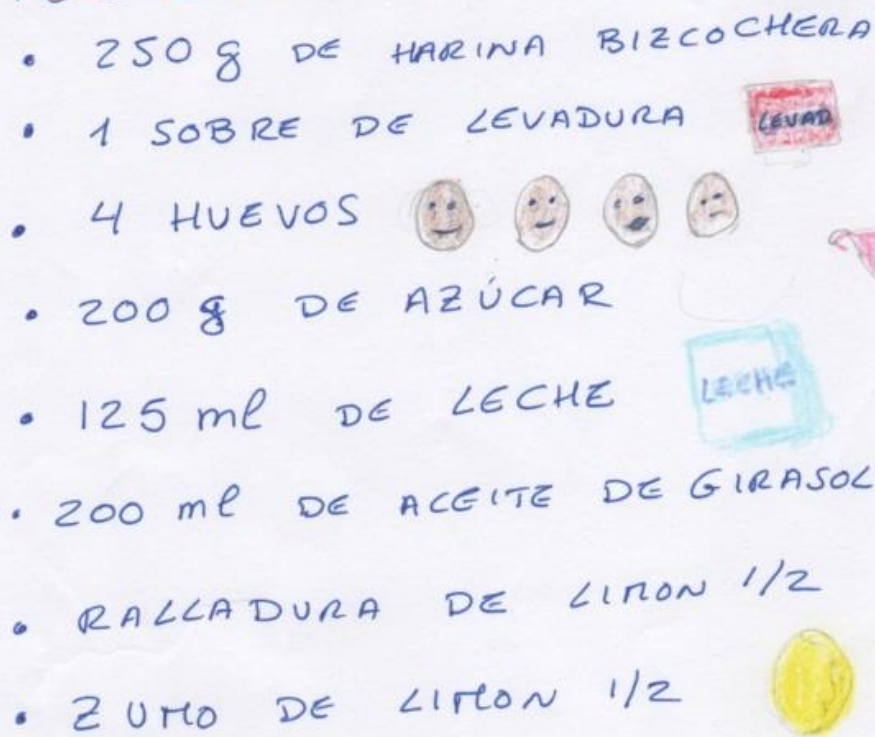 • 250 g DE HARINA BIZCOCHERA
• 1 SOBRE DE LEVADURA LEVAD
• 4 HUEVOS
• 200 g DE AZÚCAR
• 125 ml DE LECHE LECHE
• 200 ml DE ACEITE DE GIRASOL
• RALLADURA DE LIMON 1/2
• ZUMO DE LIMON 1/2